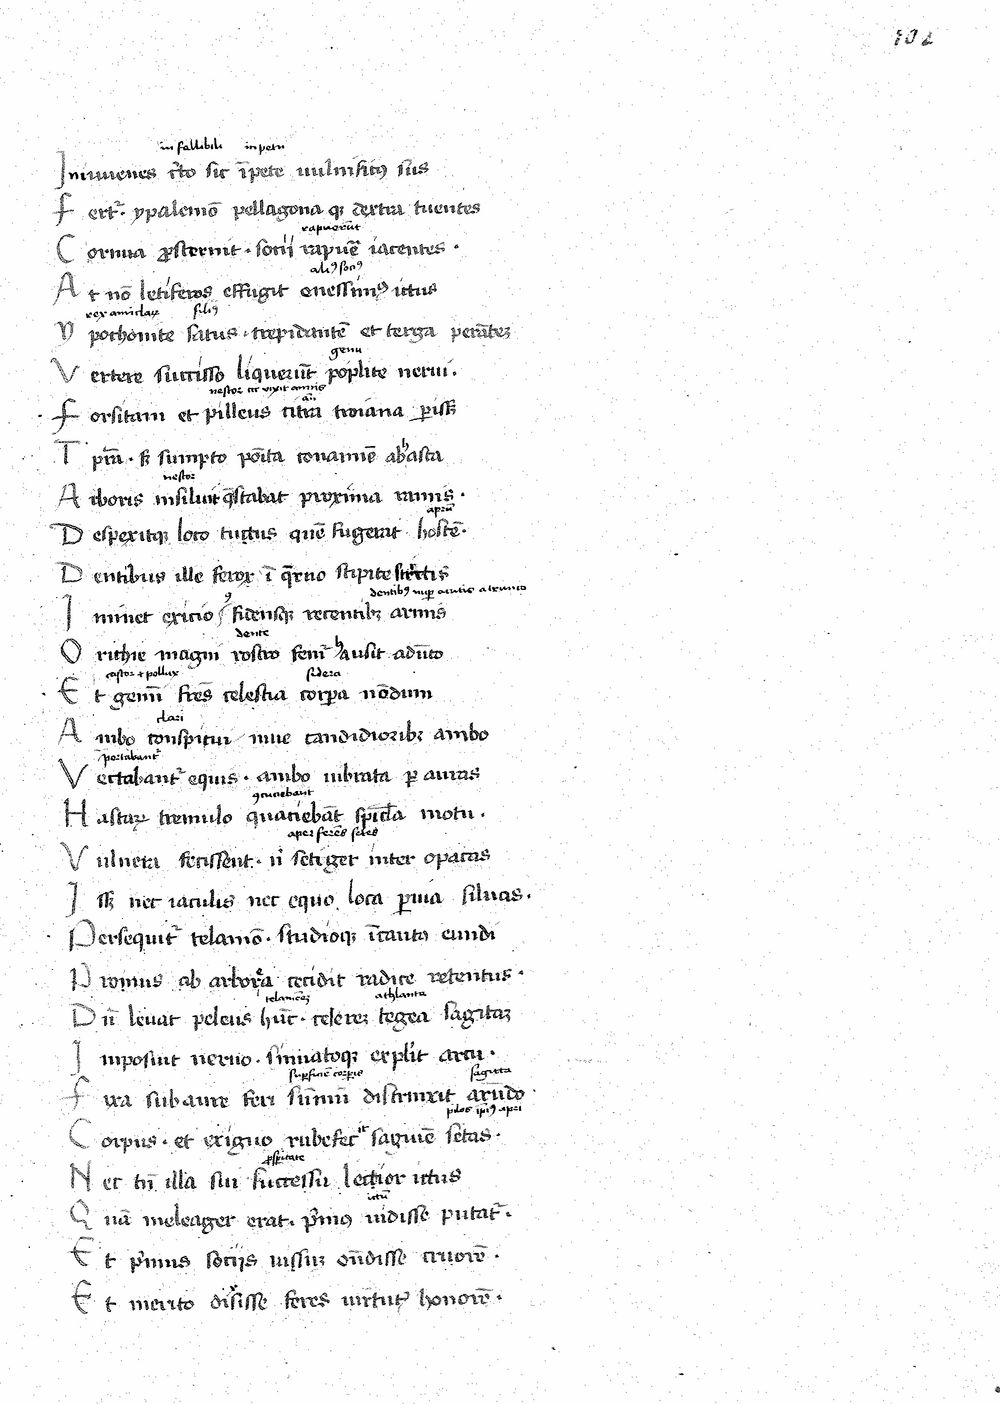 102
in fallibili inpetu
Iniuuenes c̄to sic īpete uulnificꝰ sus
Fertʳ. ypalemō pellagona qꝫ dextra tuentes
rapuerūt
Cornua ꝓsternit. socii rapuē iacentes.
aliꝰ sociꝰ
At nō letiferos effugit enessimꝰ ictus
rex amiclaꝝ filiꝰ
Ypochoonte satus. trepidantē et terga perātē
genu
Vertere succisso liquerūt poplite nerui.
nestor
Forsitam et pilleus citra troiana ꝑissꝫ
Tpr̄a. sꝫ sumpto poīta conamiē abʰasta
nestor
Arboris insiluit q̄ stabat proxima ramis.
aprū
Despexitqꝫ loco tuctus quē fugerat hostē.
Dentibus ille ferox ī q̄rno stipite
dentibꝰ nuꝑ acutis a trunco
Iminet exicio fidensqꝫ recentibꝫ armis
dente
Orithie magni rostro femʳ ʰausit adūco
castor ⁊ pollux sidera
Et gemī frēs celestia corꝑa nōdum
clari
Ambo conspicui niue candidioribꝫ ambo
portabantʳ
Vectabantʳ equis. ambo uibrata ꝑ auras
ꝯcuciebant
Hastaꝝ tremulo quaciebāt spīcla motu.
aper ferēs setes
Vulnera fecissent. nⁱ setiger inter opacas
Issꝫ nec iaculis nec equo loca ꝑuia siluas.
Persequitʳ telamō. studioqꝫ īcautꝰ eundi
Pronus ab arborea cecidit radice retentus.
telamonē athlanta
Dū leuat peleus hūc. celerē tegea sagitā
Inposuit neruo. sinuatoqꝫ explit arcu.
suꝑficiē corꝑis sagitta
Fixa sub aure feri sūmū distrinxit arūdo
pilos ipiꝰ apri
Corpus. et exiguo rubefecⁱᵗ saguīe setas.
ꝓsꝑitate
Nec tn̄ illa sui successu lectior ictus
ictū
Quā meleager erat. pⁱmꝰ uidisse putatʳ.
Et pⁱmus sociis uissuꝫ on̄disse cruorē.
Et merito dixisse feres uirtutꝭ honorē.